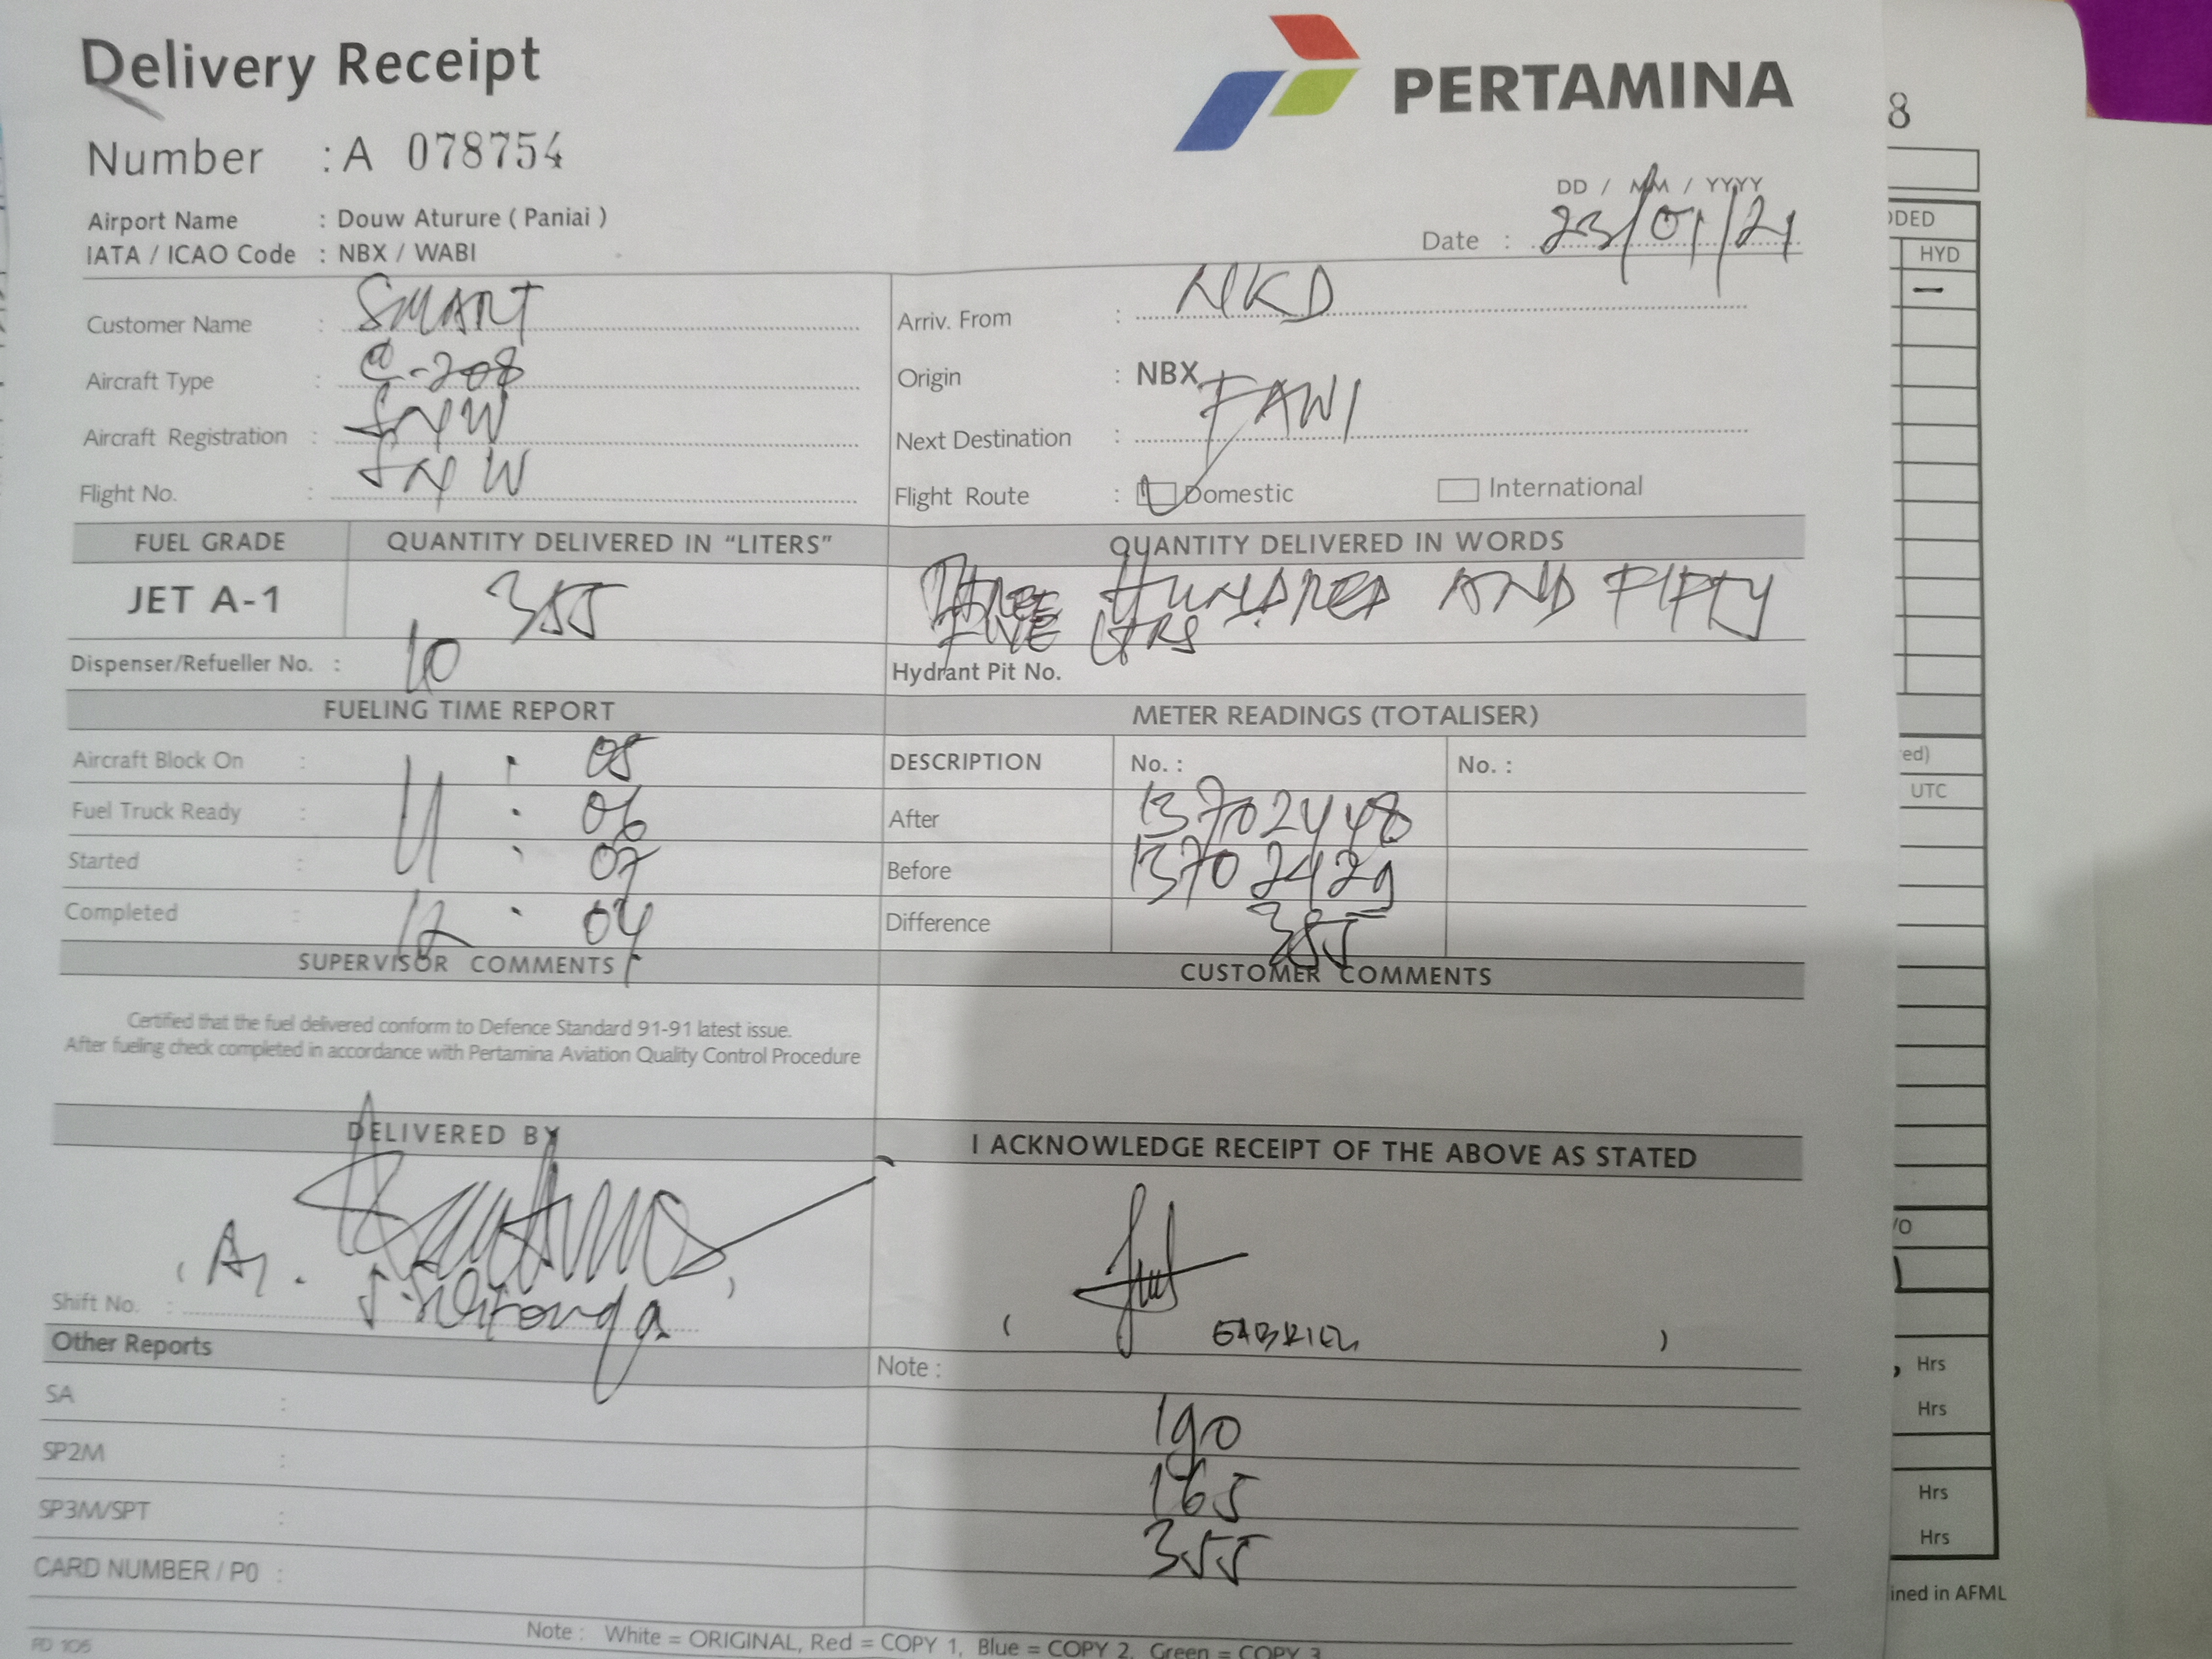 Delivery Receipt
PERTAMINA
Number : A 078754
8
DD / MM / YYYY
Airport Name : Douw Aturure ( Paniai )
Date : 23/01/21
IATA / ICAO Code : NBX / WABI
DDED
HYD
Customer Name : SMART
Arriv. From : NKD
–
Aircraft Type : C-208
Origin : NBX
Aircraft Registration : SNW
Next Destination : FAWI
Flight No. : SNW
Flight Route : Domestic International
FUEL GRADE QUANTITY DELIVERED IN "LITERS" QUANTITY DELIVERED IN WORDS
JET A-1 355 THREE HUNDRED AND FIFTY
FIVE LTRS
Dispenser/Refueller No. : 10
Hydrant Pit No.
FUELING TIME REPORT METER READINGS (TOTALISER)
Aircraft Block On : 11 : 05
DESCRIPTION No. : No. :
red)
UTC
Fuel Truck Ready : : 06
After 13702448
Started : : 07
Before
Completed : 12 : 04
Difference 355
SUPERVISOR COMMENTS CUSTOMER COMMENTS
Certified that the fuel delivered conform to Defence Standard 91-91 latest issue.
After fueling check completed in accordance with Pertamina Aviation Quality Control Procedure
DELIVERED BY I ACKNOWLEDGE RECEIPT OF THE ABOVE AS STATED
/O
Shift No. :
( GABRIEL )
Other Reports
Note :
Hrs
SA :
190
Hrs
SP2M :
165
Hrs
SP3M/SPT :
355
Hrs
CARD NUMBER / P0 :
ined in AFML
Note : White = ORIGINAL, Red = COPY 1, Blue = COPY 2, Green = COPY 3
PD 105